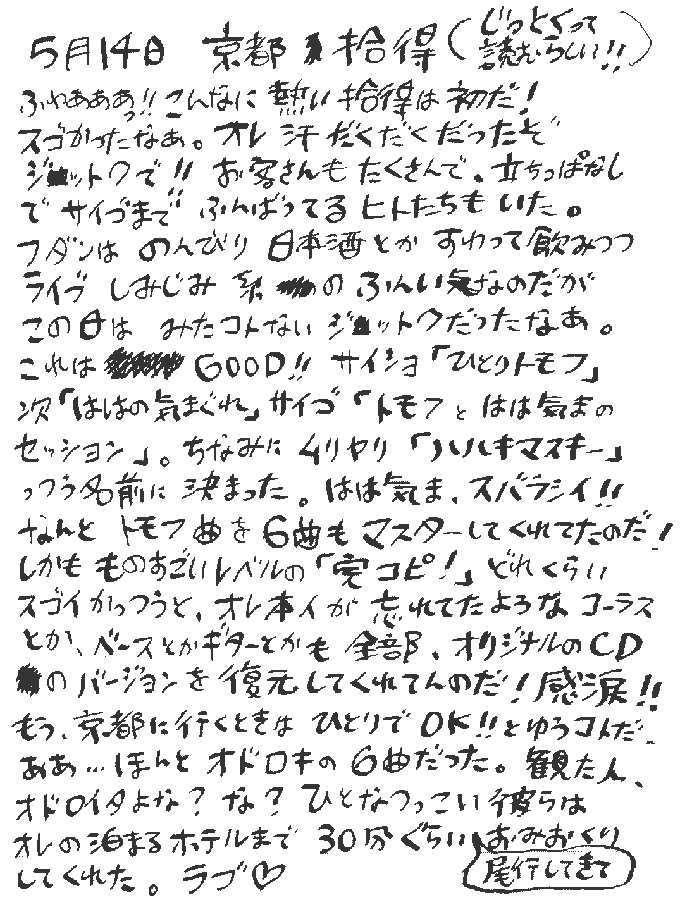 5月14日 京都 拾得(じっとくって読むらしい!!)
ふわあああっ!!こんなに 熱い 拾得は 初だ!
スゴかったなぁ。オレ 汗 だくだくだったぞ
ジェットクで!! お客さんも たくさんで、立ちっぱなし
で サイゴまで ふんばってる ヒトたちも いた。
フダンは のんびり 日本酒とか すわって飲みつつ
ライブ しみじみ 系 の ふんい気なのだが
この日は みたコトない ジェットクだったなあ。
これは GOOD!! サイショ「ひとりトモフ」
次「ははの気まぐれ」サイゴ「トモフと はは気まの
セッション」。ちなみに ムリヤリ「ハルキマスキー」
っつう名前に 決まった。はは気ま、スバラシイ!!
なんと トモフ曲を 6曲も マスターしてくれてたのだ!
しかも ものすごいレベルの「完コピ!」どれくらい
スゴイかっつうと、オレ本人が 忘れてたような コーラス
とか、ベースとかギターとかも 全部、オリジナルのCD
の バージョンを 復元してくれてんのだ!感涙!!
もう、京都に行くときは ひとりで OK!!とゆうコトだ。
ああ…ほんと オドロキの 6曲だった。観た人、
オドロイタよな?な?ひとなつっこい 彼らは
オレの泊まるホテルまで 30分ぐらい おみおくり
してくれた。ラブ♡ 尾行してきて